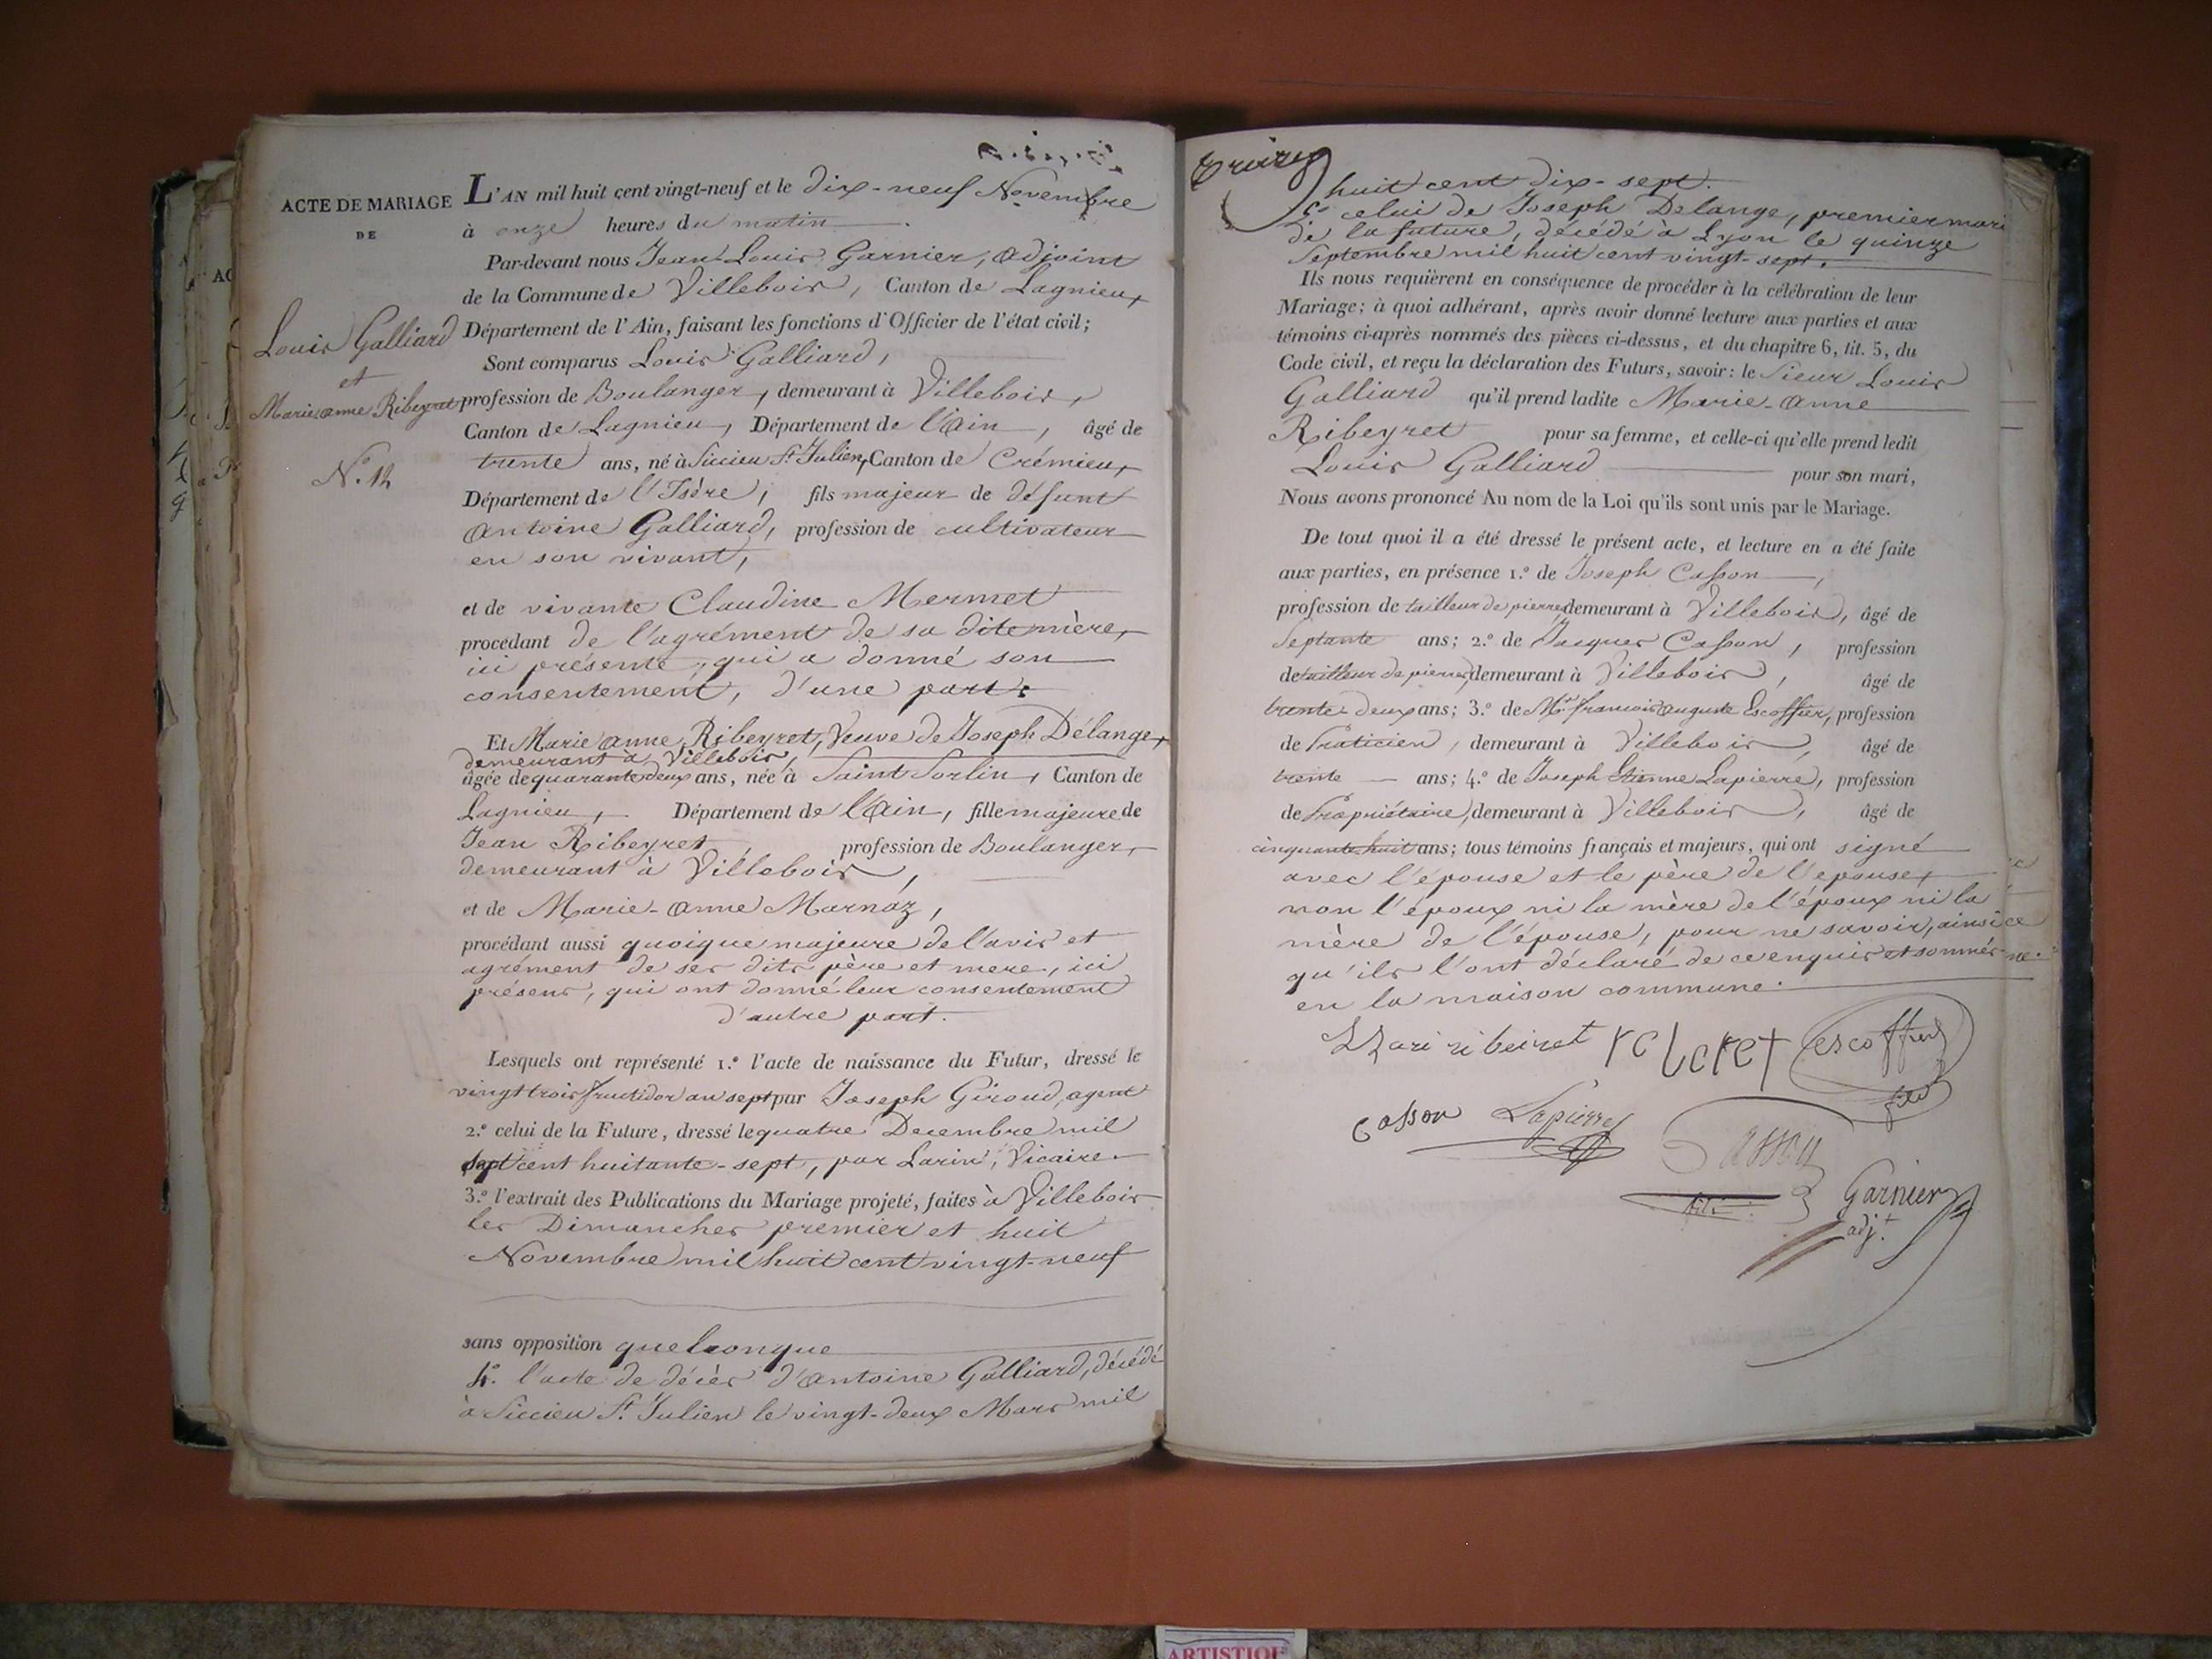 ACTE DE MARIAGE
DE
Louis Galliard
et
Marie anne Ribeyret
N.o 12
L'AN mil huit cent vingt-neuf et le dix-neuf Novembre
à onze heures du matin
Par-devant nous Jean-Louis Garnier, adjoint
de la Commune de Villebois, Canton de Lagnieu,
Département de l'Ain, faisant les fonctions d'Officier de l'état civil;
Sont comparus Louis Galliard,
profession de Boulanger, demeurant à Villebois,
Canton de Lagnieu, Département de l'Ain, âgé de
trente ans, né à Siccieu St. Julien, Canton de Crémieu,
Département de l'Isère, fils majeur de défunt
Antoine Galliard, profession de cultivateur
en son vivant,
et de vivante Claudine Mermet
procédant de l'agrément de sa dite mère,
ici présente, qui a donné son
consentement, d'une part:
Et Marie anne Ribeyret, Veuve de Joseph Délange,
demeurant à Villebois,
âgée de quarante deux ans, née à Saint Sorlin, Canton de
Lagnieu, Département de l'Ain, fille majeure de
Jean Ribeyret, profession de Boulanger,
demeurant à Villebois,
et de Marie-anne Marnaz,
procédant aussi quoique majeure de l'avis et
agrément de ses dits père et mere, ici
présens, qui ont donné leur consentement
d'autre part.
Lesquels ont représenté 1.o l'acte de naissance du Futur, dressé le
vingt trois fructidor an sept par Joseph Giroud, agent
2.o celui de la Future, dressé le quatre Decembre mil
sept cent huitante-sept, par Larin, Vicaire.
3.o l'extrait des Publications du Mariage projeté, faites à Villebois
les Dimanches premier et huit
Novembre mil huit cent vingt-neuf
sans opposition quelconque
4.o l'acte de décès d'antoine Galliard, décédé
à Siccieu St. Julien le vingt-deux Mars mil
huit cent dix-sept.
5.o celui de Joseph Delange, premier mari
de la future, décédé à Lyon le quinze
Septembre mil huit cent vingt-sept.
Ils nous requièrent en conséquence de procéder à la célébration de leur
Mariage; à quoi adhérant, après avoir donné lecture aux parties et aux
témoins ci-après nommés des pièces ci-dessus, et du chapitre 6, tit. 5, du
Code civil, et reçu la déclaration des Futurs, savoir: le Sieur Louis
Galliard qu'il prend ladite Marie-anne
Ribeyret pour sa femme, et celle-ci qu'elle prend ledit
Louis Galliard pour son mari,
Nous avons prononcé Au nom de la Loi qu'ils sont unis par le Mariage.
De tout quoi il a été dressé le présent acte, et lecture en a été faite
aux parties, en présence 1.o de Joseph Casson,
profession de tailleur de pierres, demeurant à Villebois, âgé de
septante ans; 2.o de Jacques Casson, profession
de tailleur de pierres, demeurant à Villebois, âgé de
trente-deux ans; 3.o de Mr. francois auguste Escoffier, profession
de Praticien, demeurant à Villebois, âgé de
trente ans; 4.o de Joseph Etienne Lapierre, profession
de Propriétaire, demeurant à Villebois, âgé de
cinquante-huit ans; tous témoins français et majeurs, qui ont signé
avec l'épouse et le père de l'epouse,
non l'époux ni la mère de l'époux ni la
mère de l'épouse, pour ne savoir, ainsi
qu'ils l'ont déclaré de ce enquis et sommés
en la maison commune.
Mari ribeiret escoffier
fils
Casson Lapierre
Casson
fils
Garnier
adj.t
ARTISTIQUE